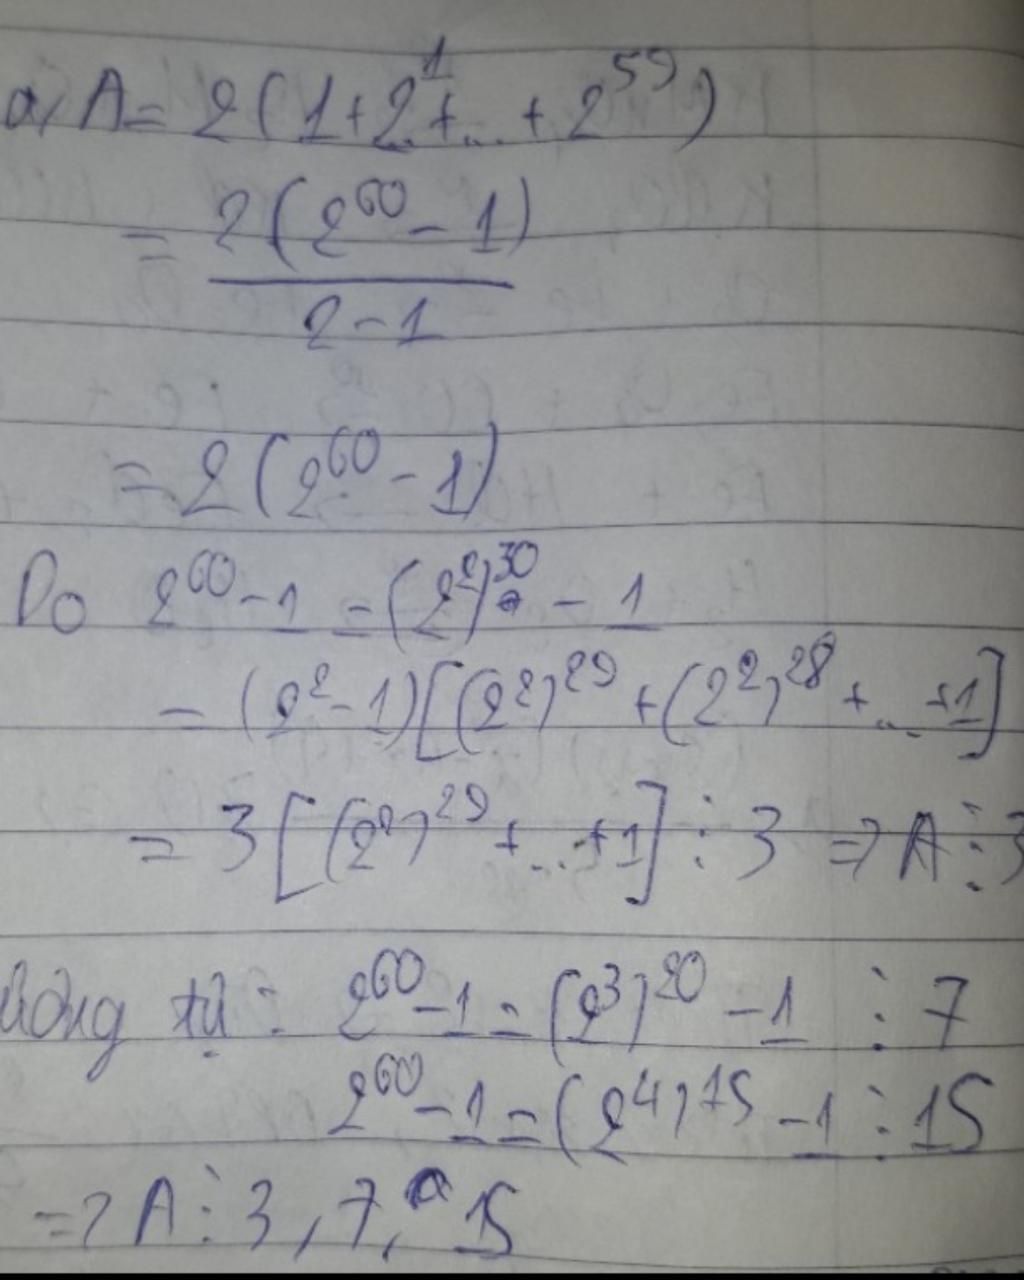 a, A = 2(1+2¹+...+2⁵⁹)
= 2(2⁶⁰-1)
2-1
= 2(2⁶⁰-1)
Do 2⁶⁰-1 = (2²)³⁰ - 1
= (2²-1)[(2²)²⁹+(2²)²⁸+...+1]
= 3[(2²)²⁹+...+1] ⋮ 3 => A ⋮ 3
tự: 2⁶⁰-1 = (2³)²⁰ - 1 ⋮ 7
2⁶⁰-1 = (2⁴)¹⁵ - 1 ⋮ 15
=> A ⋮ 3, 7, 15